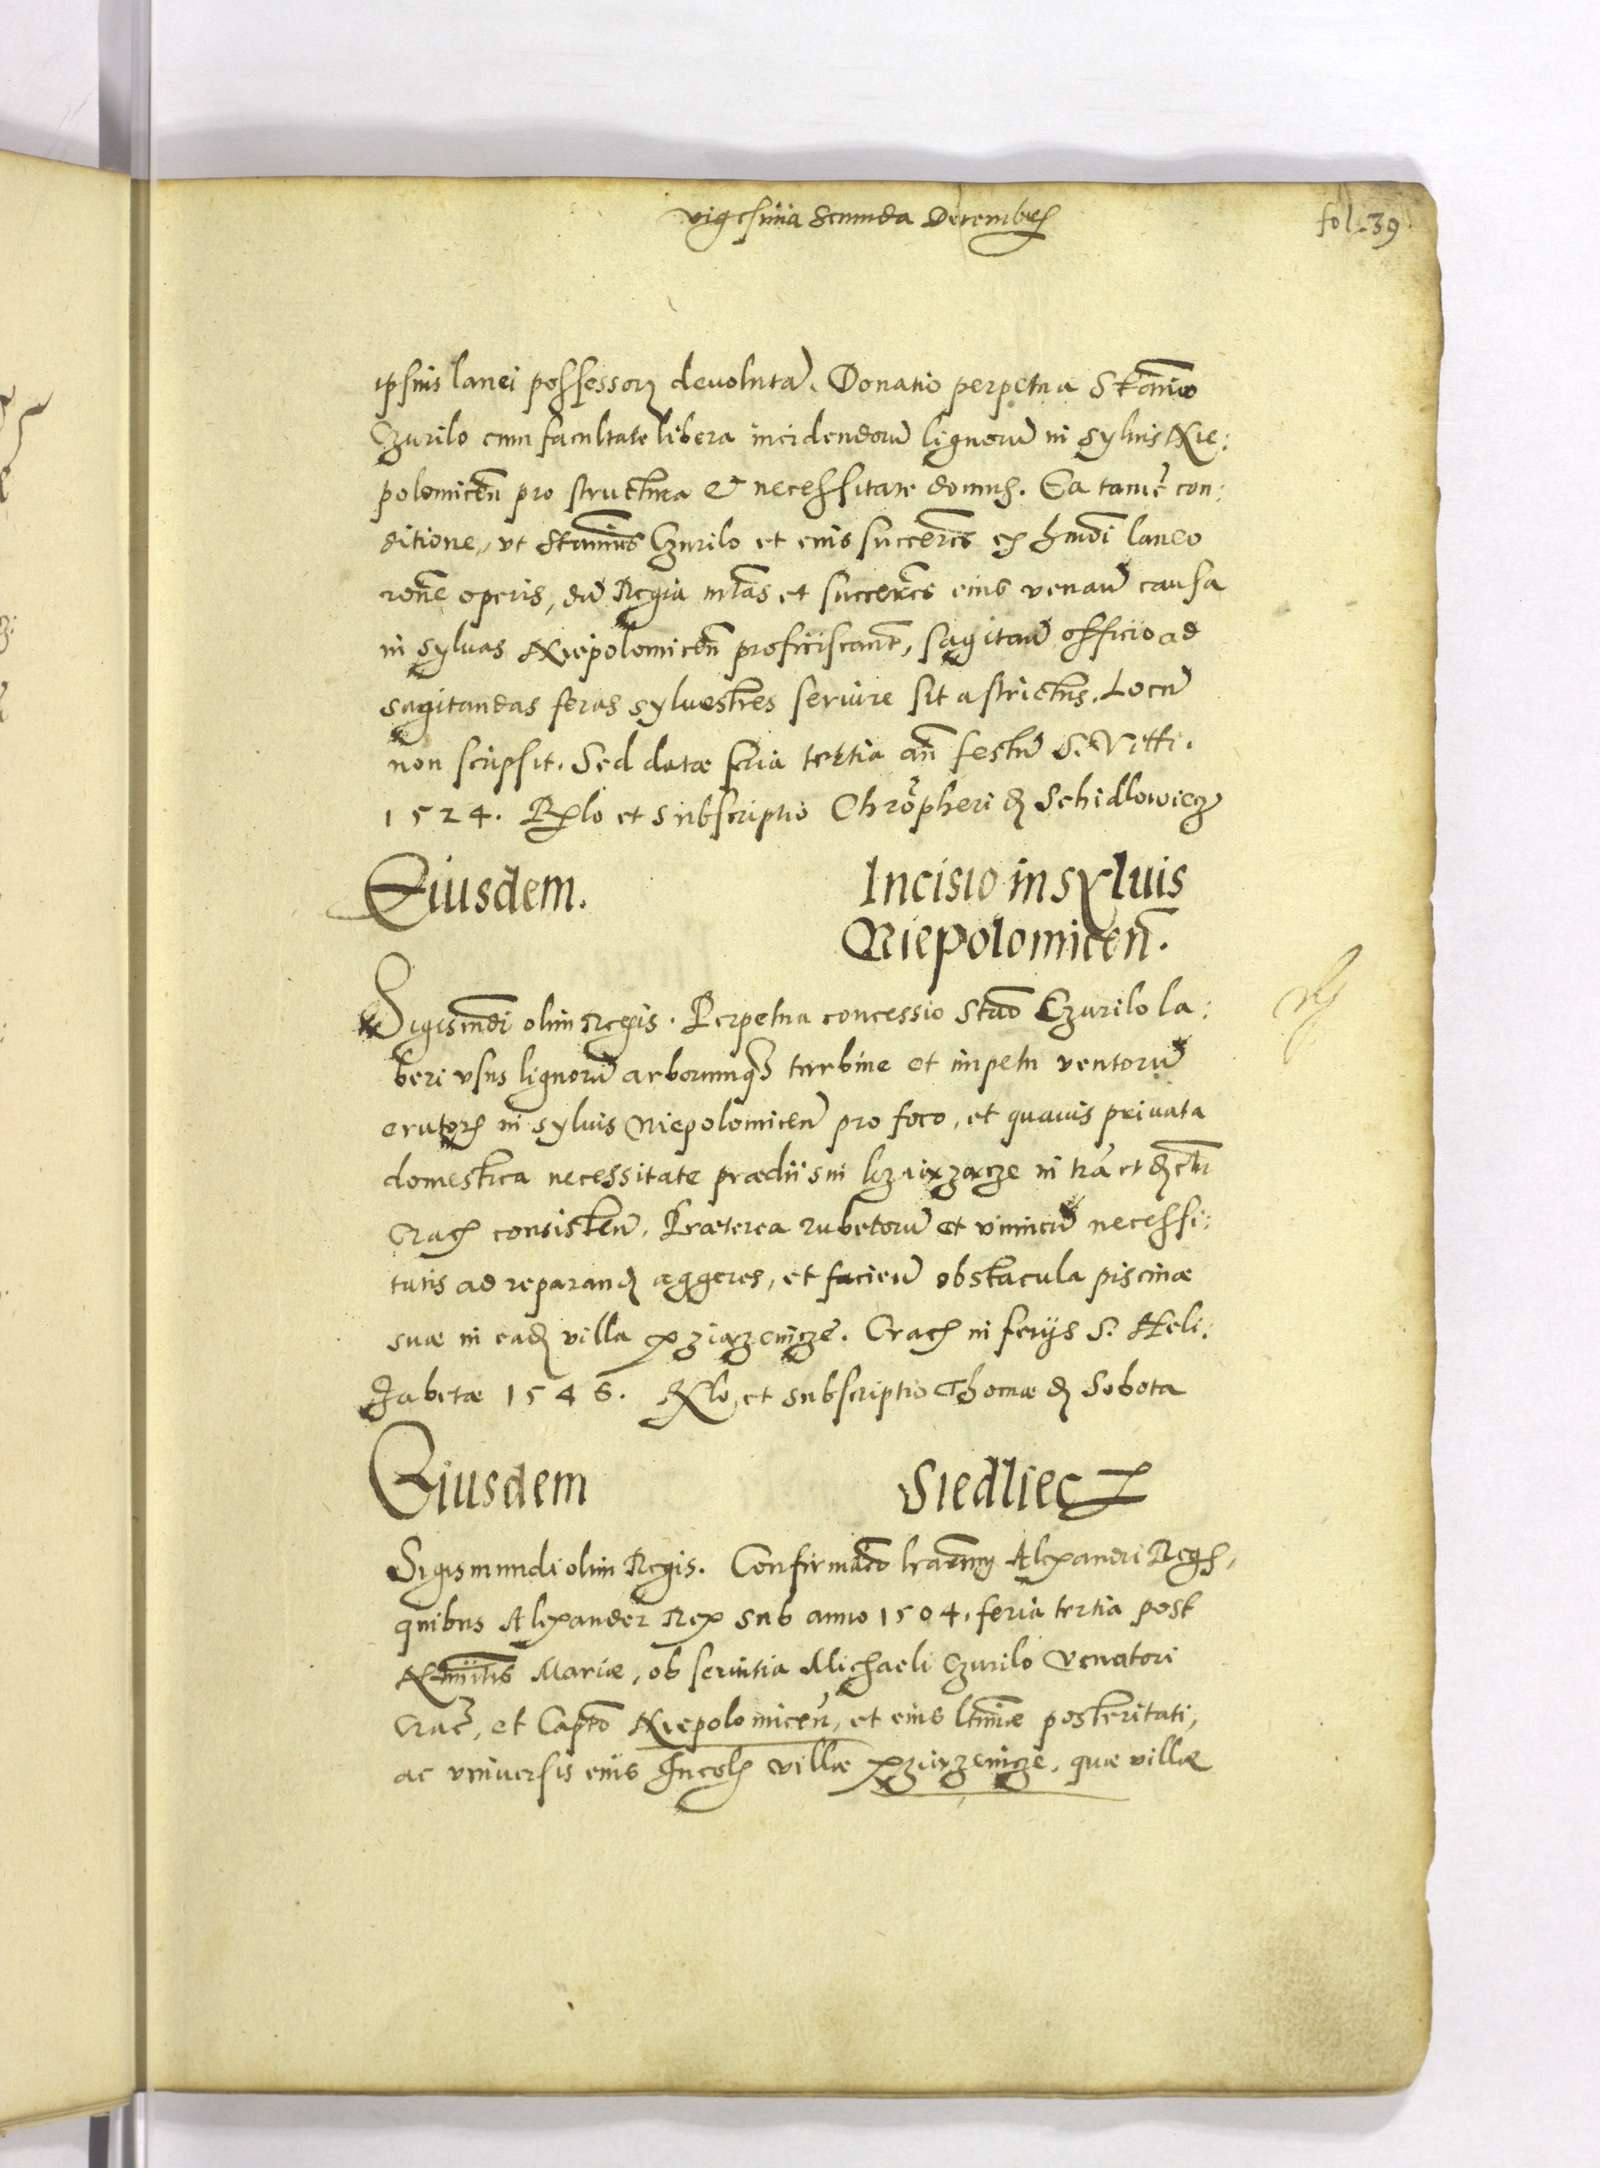 vigesima secunda Decembris
fol. 39
ipsius lanei possessorẽ devolutã. Donatio perpetua Stanıs̃o
Czurilo cum facultate libera incidendorũ lignorũ in syluis Nie:
polomiceñ pro structura et necessitate domus. Ea tamẽ con:
ditione, vt Stanıs̃us Czurilo et eius succeres̃ ex hmõi laneo
rõne operis, dũ Regia mtãs et succeres̃ eius venanď causa
in syluas Niepolomiceñ proficiscant̃, sagitanď officio ad
sagitandas feras sylvestres seruire sit astrictus. Locũ
non scripsit. Sed datæ feria tertia añ festũ S. Viti.
1524. Rlo et subscriptio Chrõpheri de Schidlowiecz
Eiusdem. Incisio in syluis
Niepolomiceñ.
Sigismũdi olim Regis. Perpetua concessio Stao Czurilo la:
beri vsus lignorũ arborumqꝫ turbine et impetu ventorũ
erutorũ in syluis Niepolomiceñ pro foco, et quavis privata
domestica necessitate prædii sui in trã et
Crac consisteñ. Præterea rubetorũ et viminũ necessi:
tatis ad reparandꝫ aggeres, et facienď obstacula piscinæ
suæ in eadꝫ villa Xziązenicze. Crac in ferijs S. Heli:
zabetæ 1546. Rlo et subscriptio Thomæ de Sobota
Eiusdem Siedliecz
Sigismundi olim Regis. Confirmatõ lraꝝ Alexandri Regis,
quibus Alexander Rex sub anno 1504. feria tertia post
Natiuitis̃ Mariæ, ob seruitia Michaeli Czurilo Venatori
Crac̃, et Captõ Niepolomiceñ, et eius ltimæ posteritati,
ac vniuersis eius Incolis villæ Xziązenicze, quæ villæ